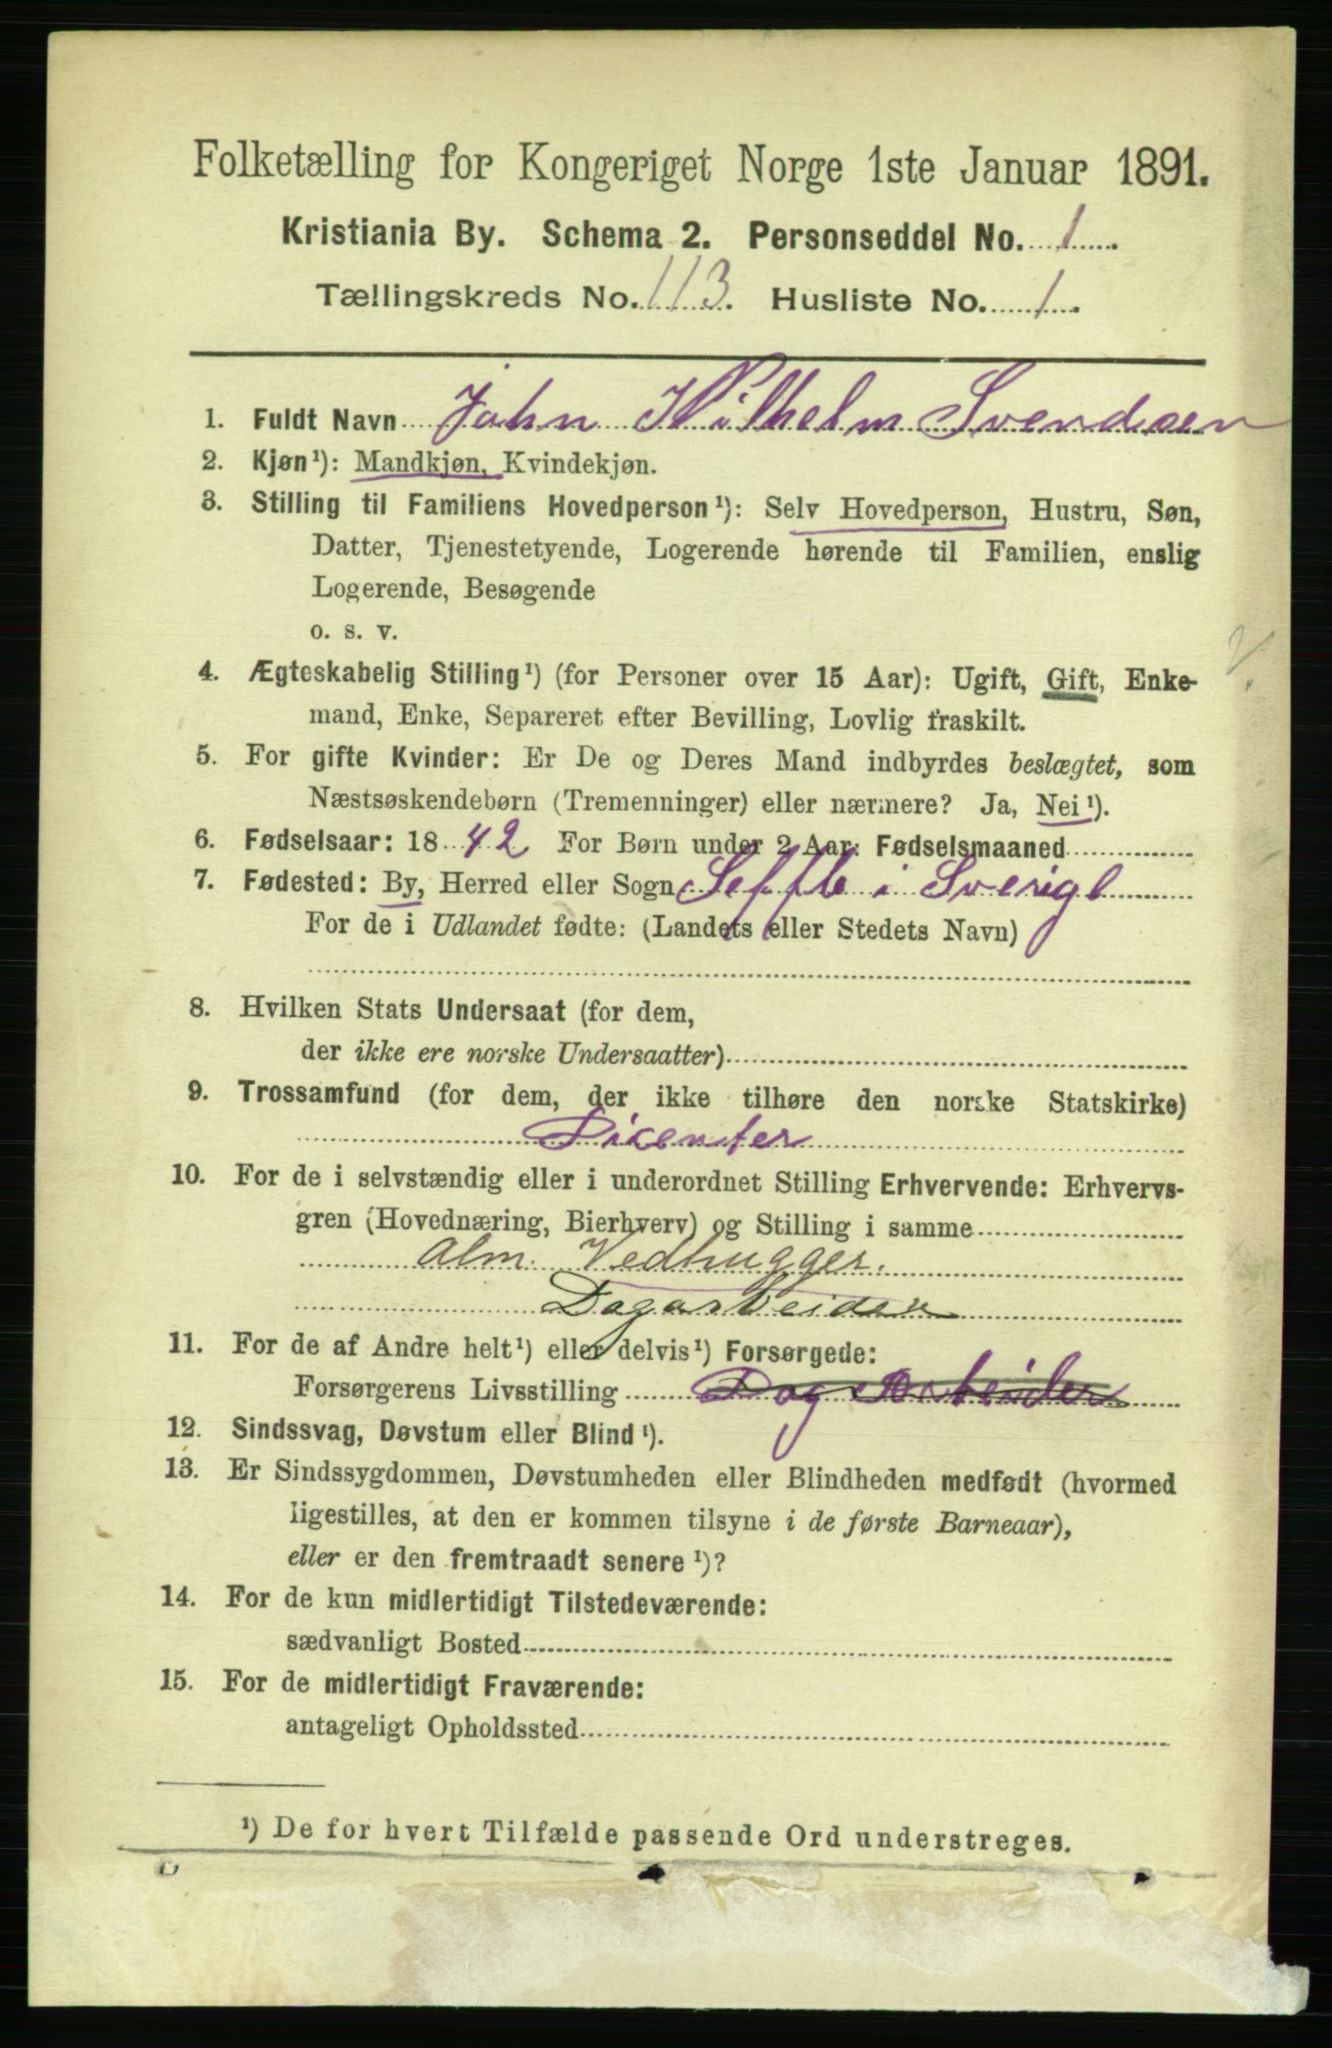 Folketælling for Kongeriget Norge 1ste Januar 1891.
Kristiania By. Schema 2. Personseddel No. 1.
Tællingskreds No. 113. Husliste No. 1.
1. Fuldt Navn John Vilhelm Svendsen
2. Kjøn ¹): Mandkjøn, Kvindekjøn.
3. Stilling til Familiens Hovedperson ¹): Selv Hovedperson, Hustru, Søn,
Datter, Tjenestetyende, Logerende hørende til Familien, enslig
Logerende, Besøgende
o. s. v.
4. Ægteskabelig Stilling ¹) (for Personer over 15 Aar): Ugift, Gift, Enke-
mand, Enke, Separeret efter Bevilling, Lovlig fraskilt.
5. For gifte Kvinder: Er De og Deres Mand indbyrdes beslægtet, som
Næstsøskendebørn (Tremenninger) eller nærmere? Ja, Nei ¹).
6. Fødselsaar: 1842 For Børn under 2 Aar: Fødselsmaaned
7. Fødested: By, Herred eller Sogn Seffle i Sverige
For de i Udlandet fødte: (Landets eller Stedets Navn)
8. Hvilken Stats Undersaat (for dem,
der ikke ere norske Undersaatter)
9. Trossamfund (for dem, der ikke tilhøre den norske Statskirke)
Dicenter
10. For de i selvstændig eller i underordnet Stilling Erhvervende: Erhvervs-
gren (Hovednæring, Bierhverv) og Stilling i samme
alm. Vedhugger.
Dagarbeider
11. For de af Andre helt ¹) eller delvis ¹) Forsørgede:
Forsørgerens Livsstilling Dag Arbeider
12. Sindssvag, Døvstum eller Blind ¹).
13. Er Sindssygdommen, Døvstumheden eller Blindheden medfødt (hvormed
ligestilles, at den er kommen tilsyne i de første Barneaar),
eller er den fremtraadt senere ¹)?
14. For de kun midlertidigt Tilstedeværende:
sædvanligt Bosted
15. For de midlertidigt Fraværende:
antageligt Opholdssted
¹) De for hvert Tilfælde passende Ord understreges.